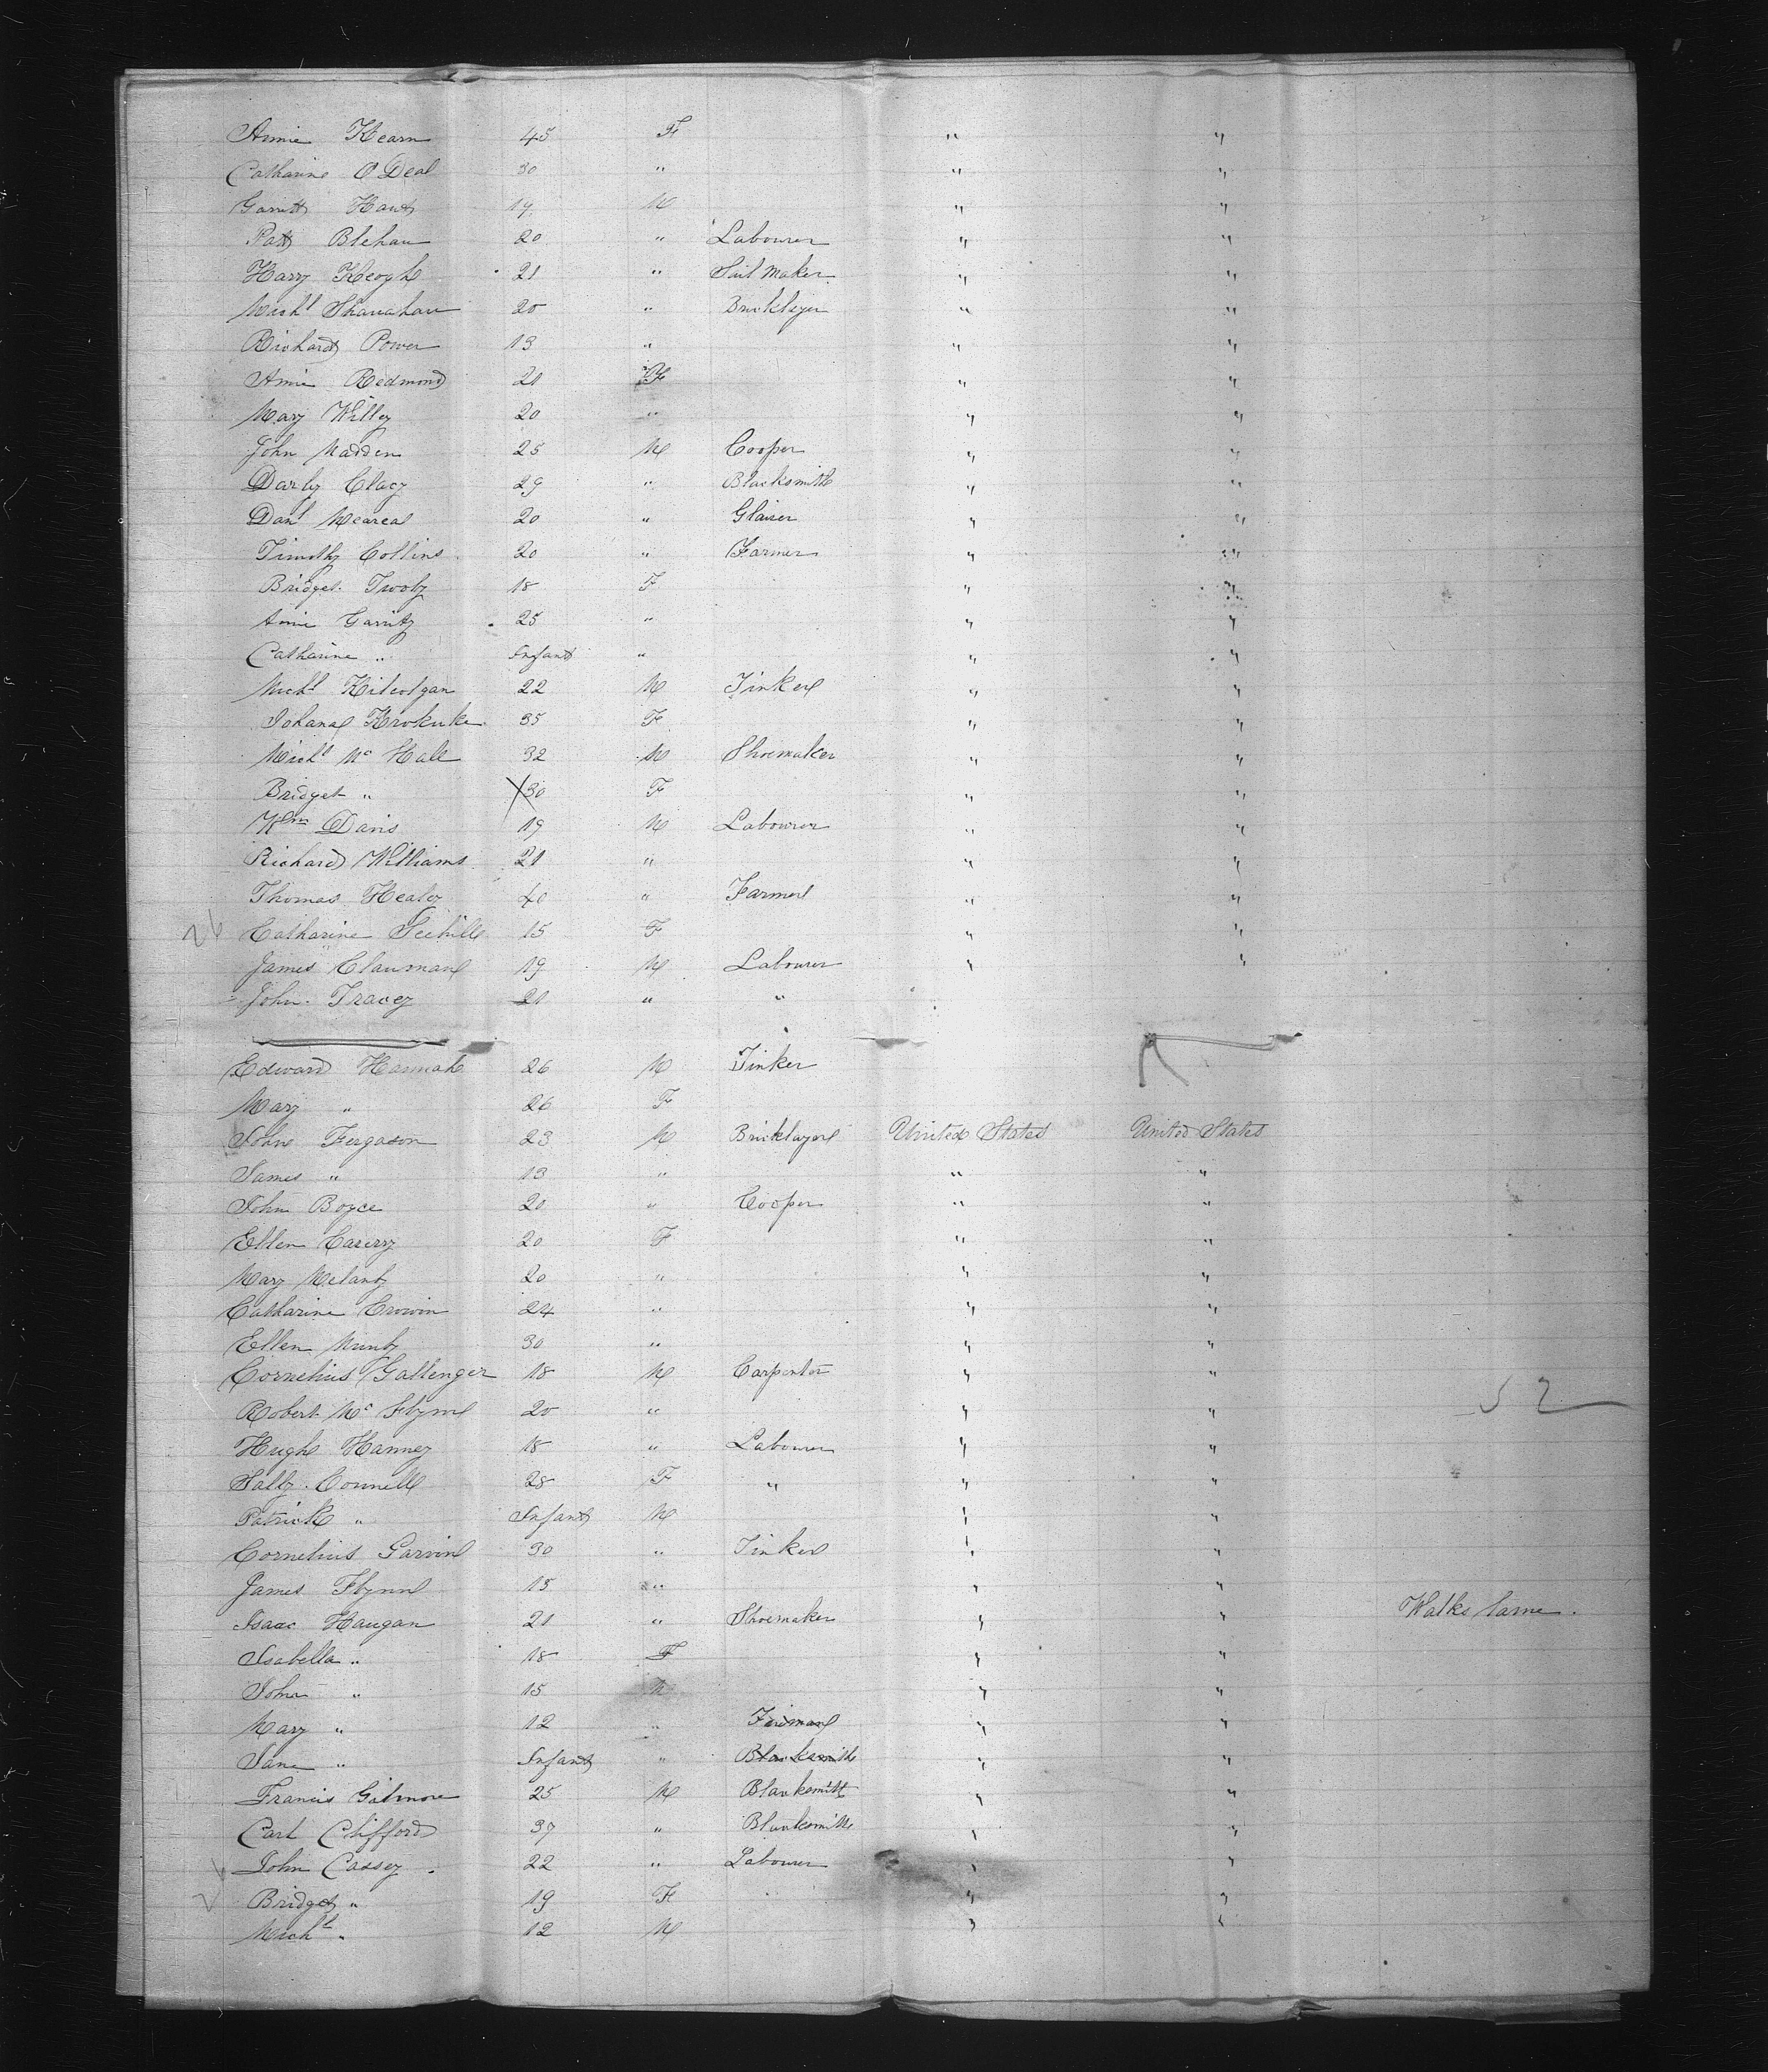 Annie Kearn 45 F " "
Catharine O'Deal 30 " " "
Garritt 19 M " "
Patt Blehan 20 " Labourer " "
Harry Keogh 21 " Sail Maker " "
Michl Shanahan 20 " Bricklayer " "
Richard Power 13 " " "
Annie Redmond 21 F " "
Mary Willey 20 " " "
John Madden 25 M Cooper " "
Darby Clacy 29 " Blacksmith " "
Danl 20 " Glaiser " "
Timothy Collins 20 " Farmer " "
Bridget Twooly 18 F " "
Annie Garrity 25 " " "
Catharine " Infant " " "
Michl Kilcolgan 22 M Tinker " "
Johana 35 F " "
Michl Mc Hale 32 M Shoemaker " "
Bridget " 30 F " "
Wm Davis 19 M Labourer " "
Richard Williams 21 " " "
Thomas Healey 40 " Farmer " "
26
Catharine 15 F " "
James Clausman 19 M Labourer " "
John Tracey 21 " "
Edward Hannah 26 M Tinker
Mary " 26 F
John Fergason 23 M Bricklayer United States United States
James " 13 " " "
John Boyce 20 " Cooper " "
Ellen Carery 20 F " "
Mary Melanty 20 " " "
Catharine Crowin 24 " " "
Ellen 30 " " "
Cornelius Gallenger 18 M Carpentor " "
52
Robert Mc Flynn 20 " " "
Hugh Hanney 18 " Labourer " "
Sally Connell 28 F " " "
Patrick " Infant M " "
Cornelius Garvin 30 " Tinker " "
James Flynn 15 " " "
Isaac Haugan 21 " Shoemaker " " Walks lame.
Isabella " 18 F " "
John " 15 M " "
Mary " 12 " " "
Jane " Infant " Blacksmith " "
Francis Gilmore 25 M Blacksmith " "
Carl Clifford 37 " Blacksmith " "
John Cassey 22 " Labourer " "
Bridget " 19 F " "
Michl " 12 M " "